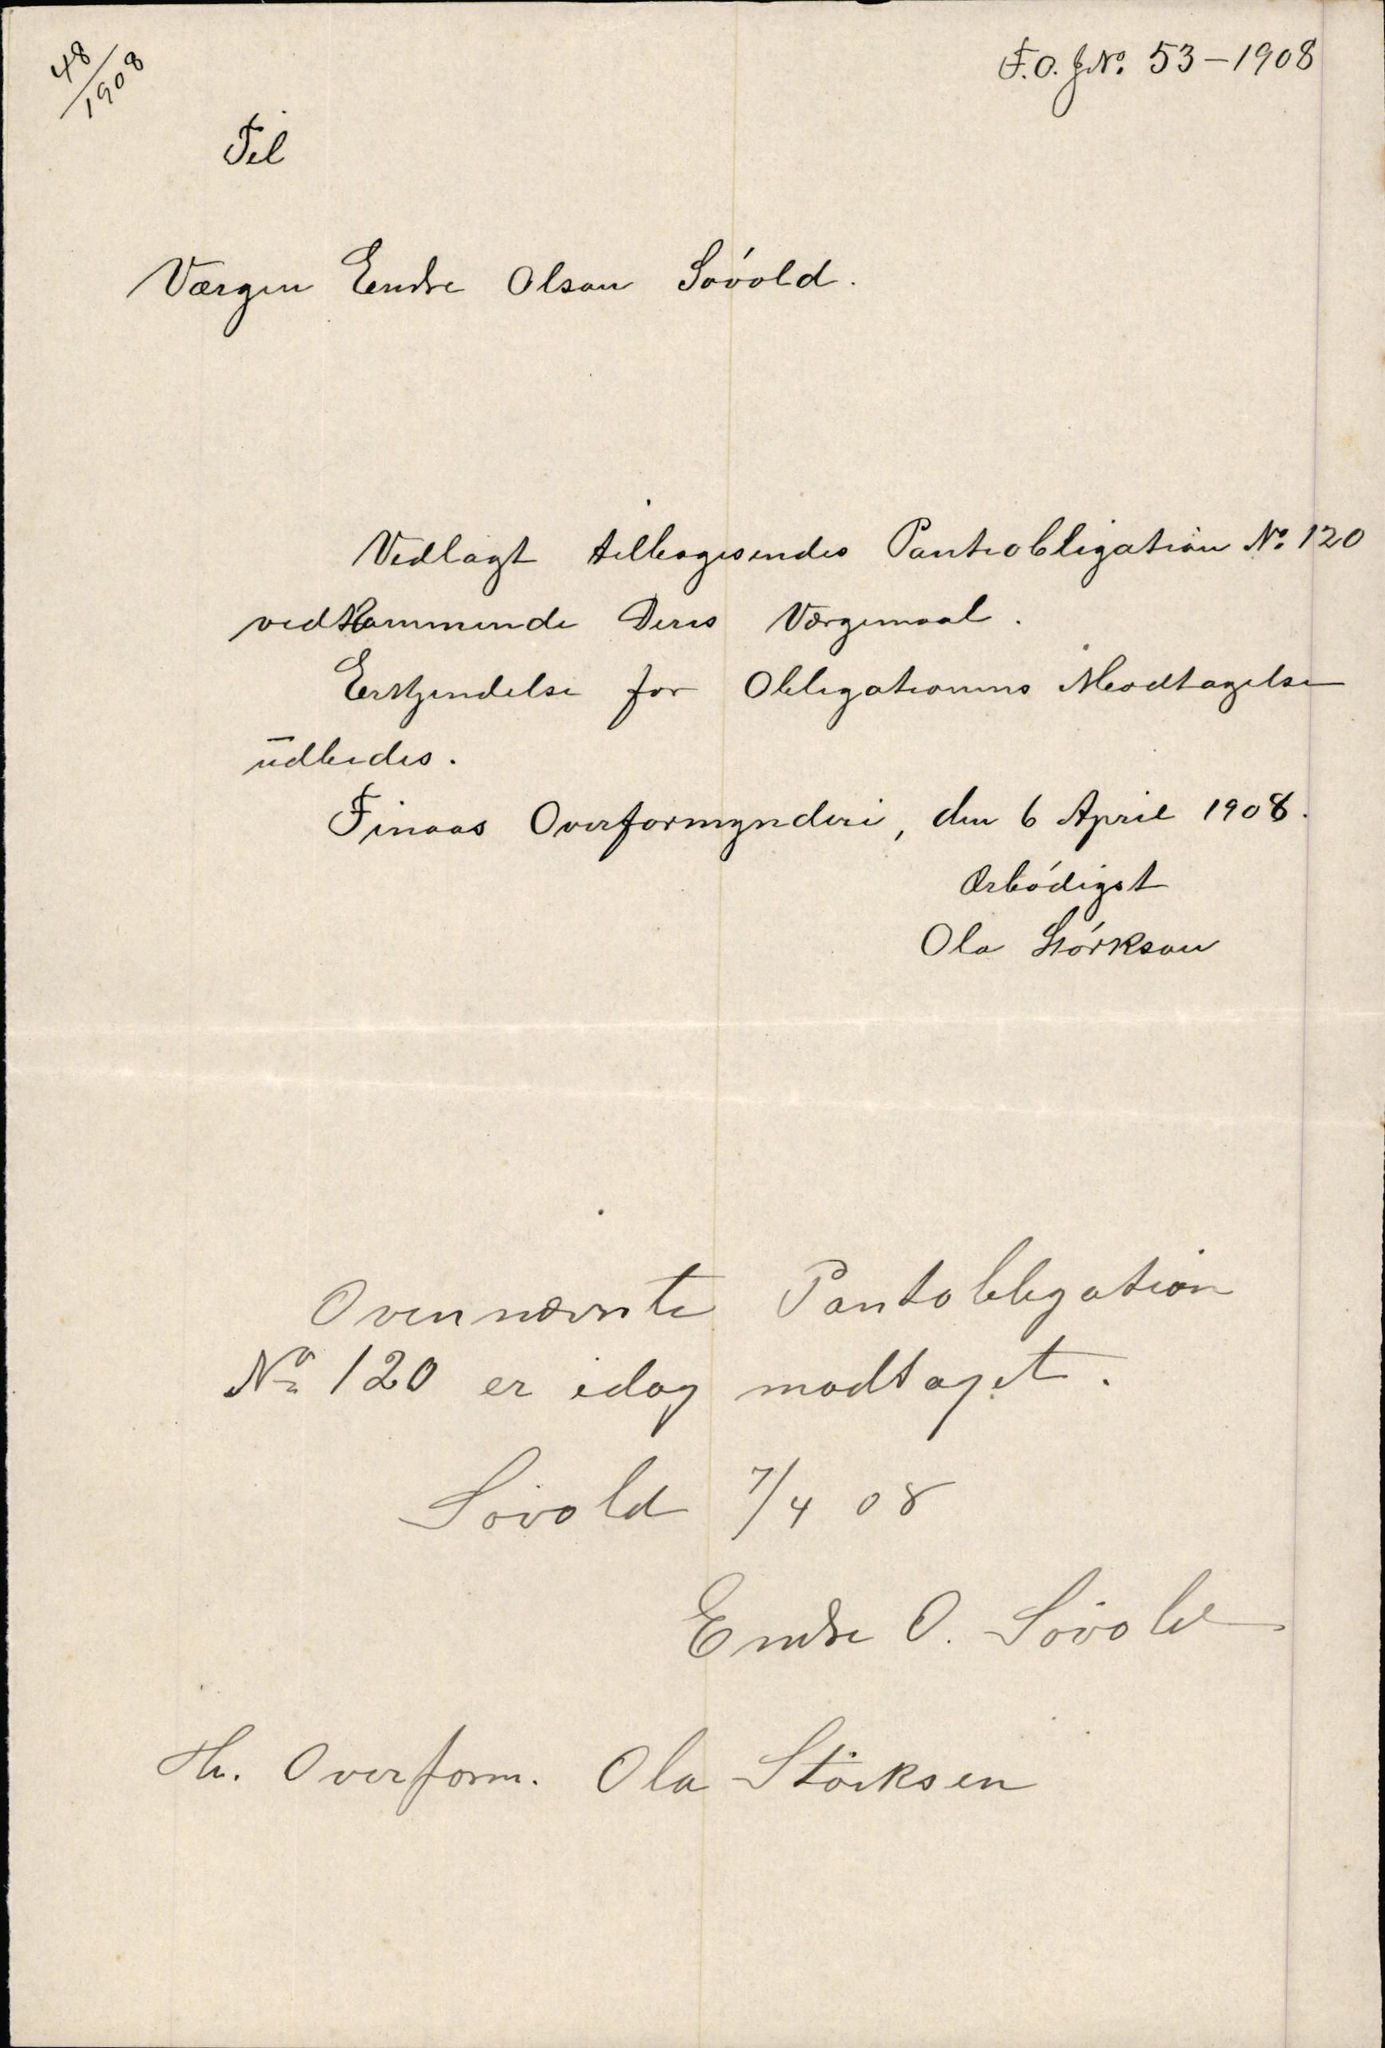 48/1908
F.O. JNo. 53-1908
Til
Værgen Endre Olson Sóvold.
Vedlagt tilbagesendes Panteobligation No. 120
vedkommende Deres Værgemaal.
Erkjendelse for Obligationens Modtagelse
udbedes.
Finaas Overformynderi, den 6 April 1908.
Ærbódigst
Ola Stórkson
Ovennævnte Pantobligation
No 120 er idag modtaget.
Sövold 7/4 08
Endre O. Sövold
Hr. Overform. Ola Störksen